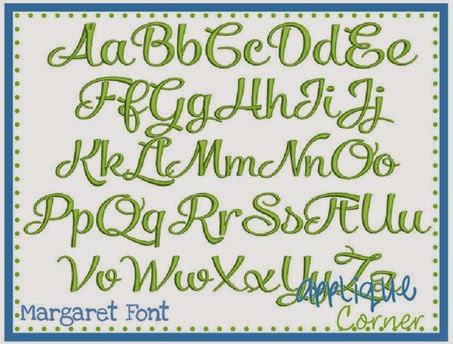 AaBbCcDdEe
FfGgHhIiJj
KkLlMmNnOo
PpQqRrSsTtUu
VvWwXxYyZz
applique
Margaret Font
Corner